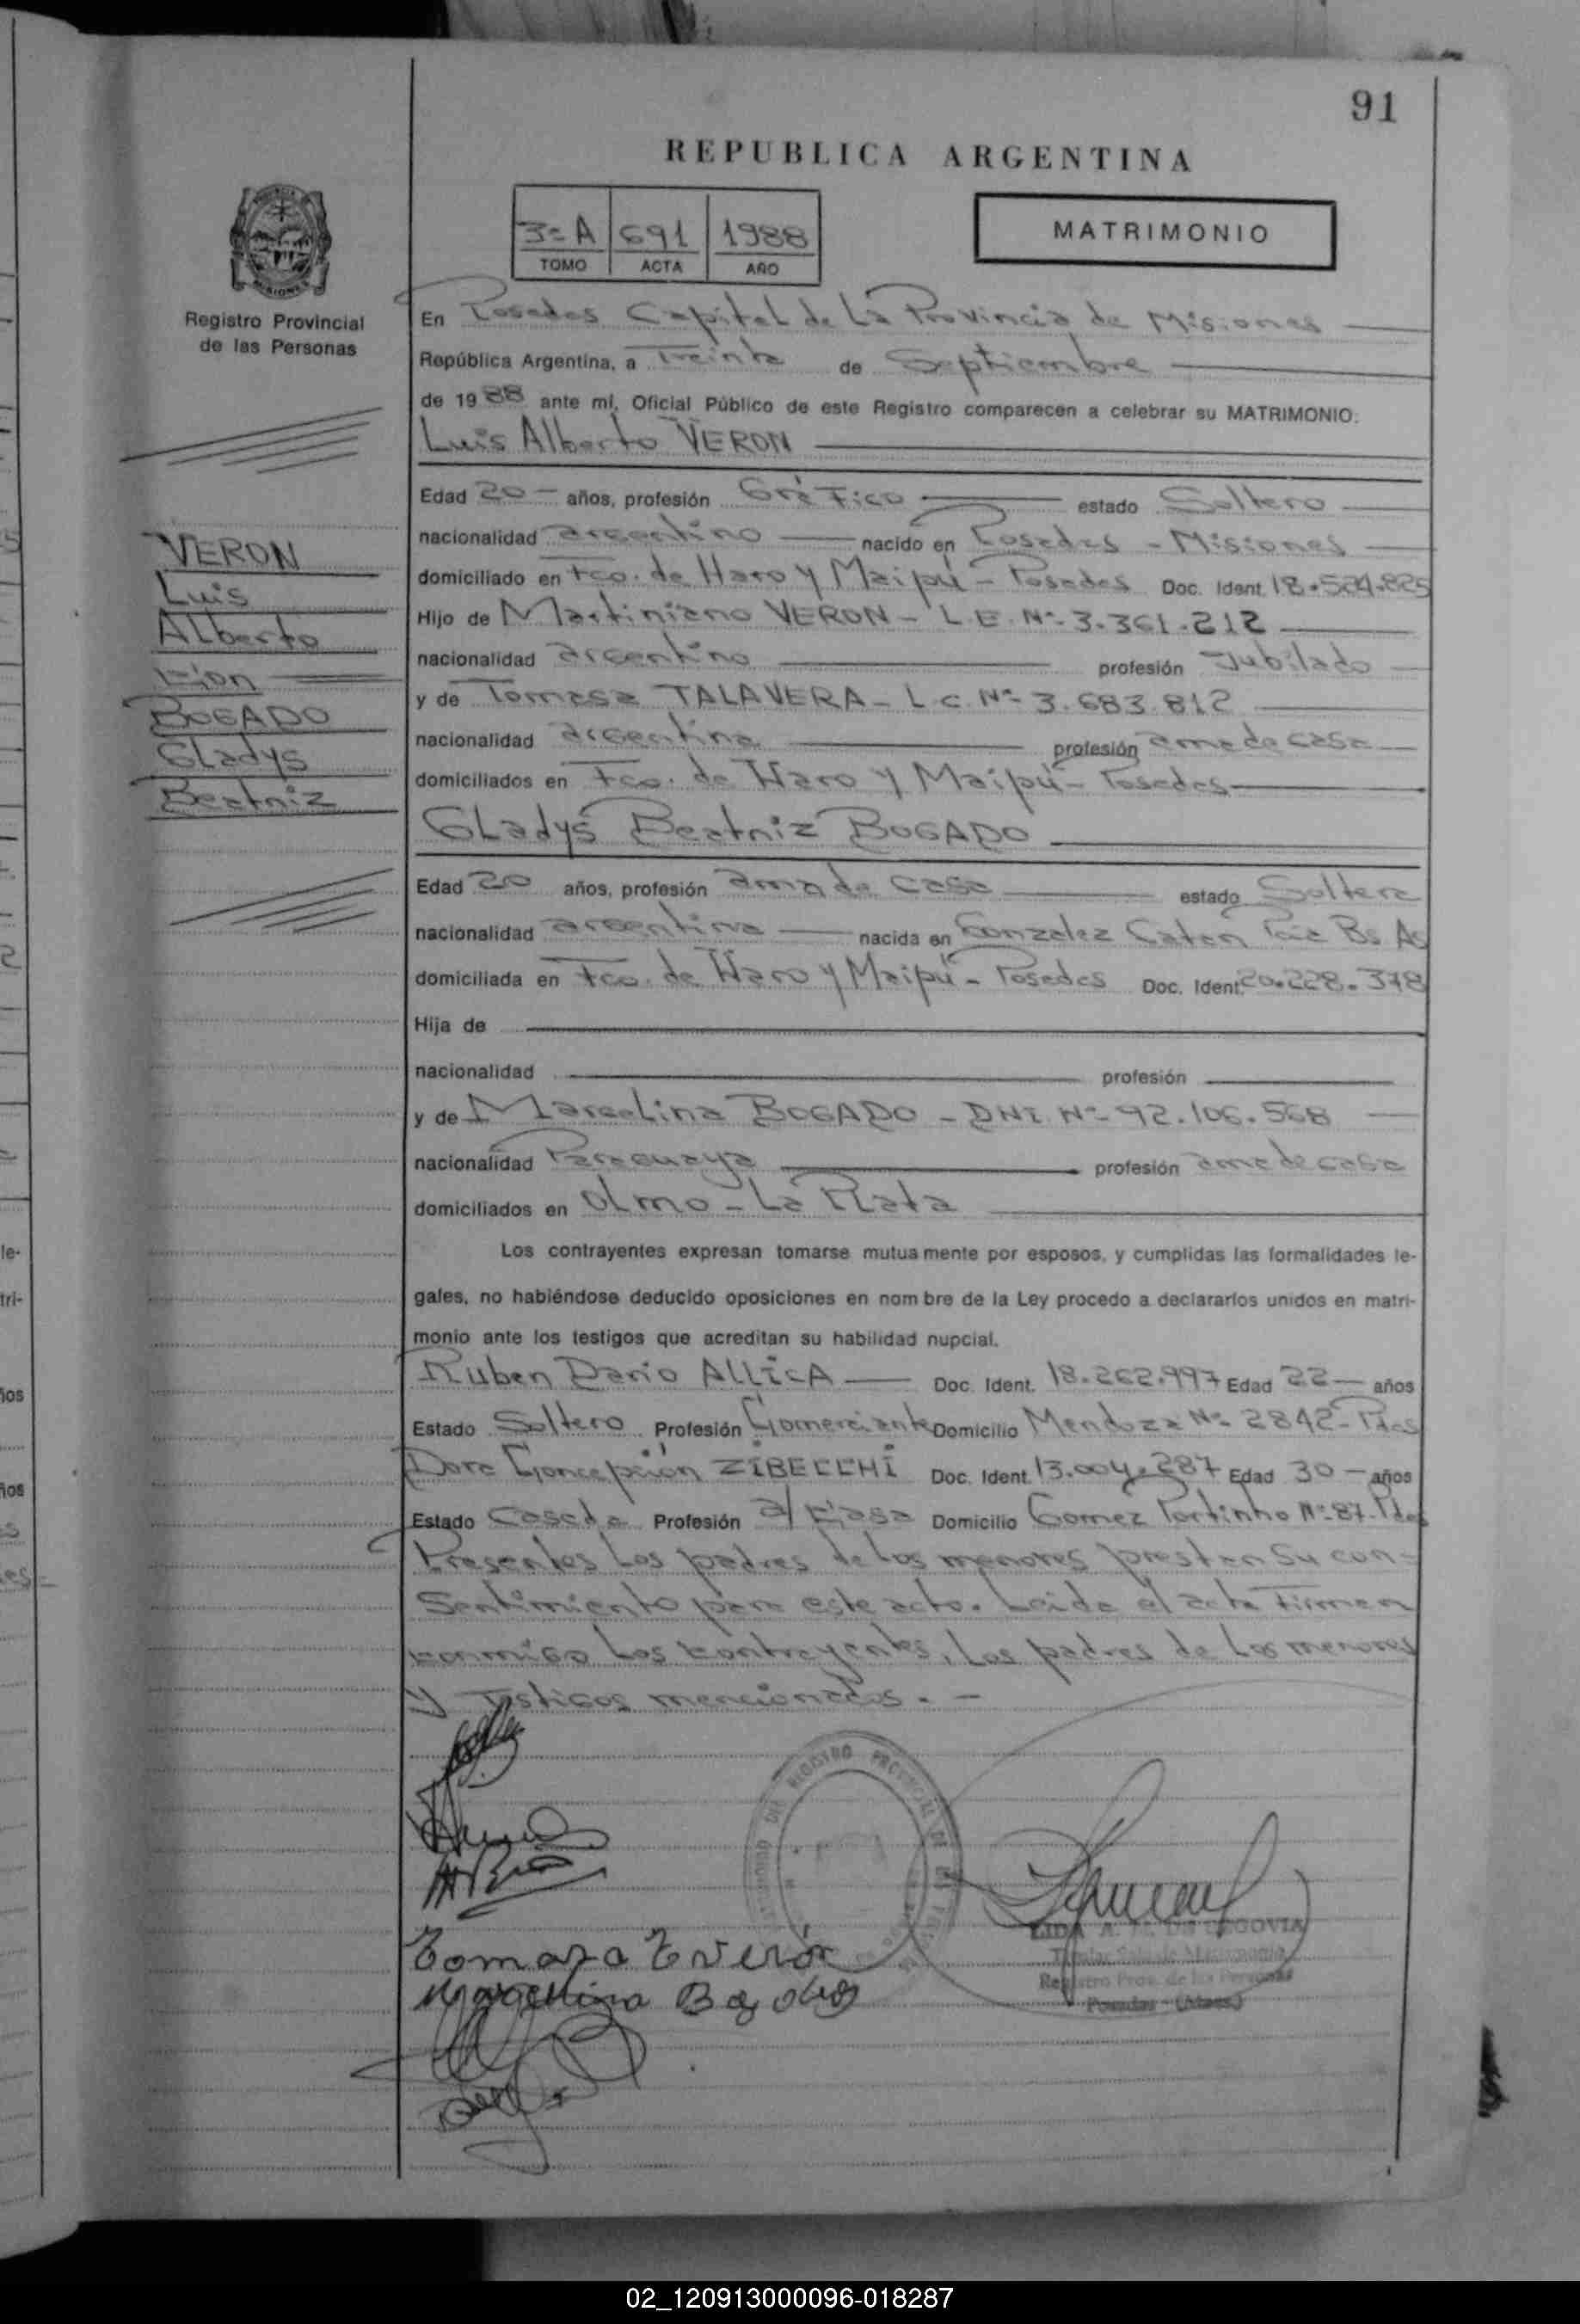 91
REPUBLICA ARGENTINA
3º A 691 1988
TOMO ACTA AÑO
MATRIMONIO
Registro Provincial
de las Personas
VERON
Luis
Alberto
con
BOGADO
Gladys
Beatriz
En Posadas Capital de La Provincia de Misiones
República Argentina, a Treinta de Septiembre
de 1988 ante mí, Oficial Público de este Registro comparecen a celebrar su MATRIMONIO:
Luis Alberto VERON
Edad 20 años, profesión Gráfico estado Soltero
nacionalidad argentino nacido en Posadas - Misiones
domiciliado en Fco. de Haro y Maipú - Posadas Doc. Ident. 18.524.825
Hijo de Martiniano VERON - L.E. Nº 3.361.212
nacionalidad argentino profesión Jubilado
y de Tomasa TALAVERA - L.C. Nº 3.683.812
nacionalidad argentina profesión ama de casa
domiciliados en Fco. de Haro y Maipú - Posadas
Gladys Beatriz BOGADO
Edad 20 años, profesión ama de casa estado Soltera
nacionalidad argentina nacida en Gonzalez Catan Pcia Bs As
domiciliada en Fco. de Haro y Maipú - Posadas Doc. Ident. 20.228.378
Hija de
nacionalidad profesión
y de Marcelina BOGADO - DNI Nº 92.106.568
nacionalidad Paraguaya profesión ama de casa
domiciliados en Olmo - La Plata
Los contrayentes expresan tomarse mutuamente por esposos, y cumplidas las formalidades le-
gales, no habiéndose deducido oposiciones en nombre de la Ley procedo a declararlos unidos en matri-
monio ante los testigos que acreditan su habilidad nupcial.
Ruben Dario ALLICA Doc. Ident. 18.262.997 Edad 22 años
Estado Soltero Profesión Comerciante Domicilio Mendoza Nº 2842 - Pdas
Dora Concepción ZIBECCHI Doc. Ident. 13.004.287 Edad 30 años
Estado Casada Profesión a/ Casa Domicilio Gomez Portinho Nº 87 - Pdas
Presentes Los padres de Los menores prestan Su con-
Sentimiento para este acto. Leida el acta Firman
conmigo Los contrayentes, Los padres de Los menores
y Testigos mencionados. -
Tomasa T Verón
Marcelina Bogado
REGISTRO PROVINCIAL DE LAS
LIDA A. DE SEGOVIA
Registro Prov. de las Personas
Posadas - (Mnes.)
02_120913000096-018287